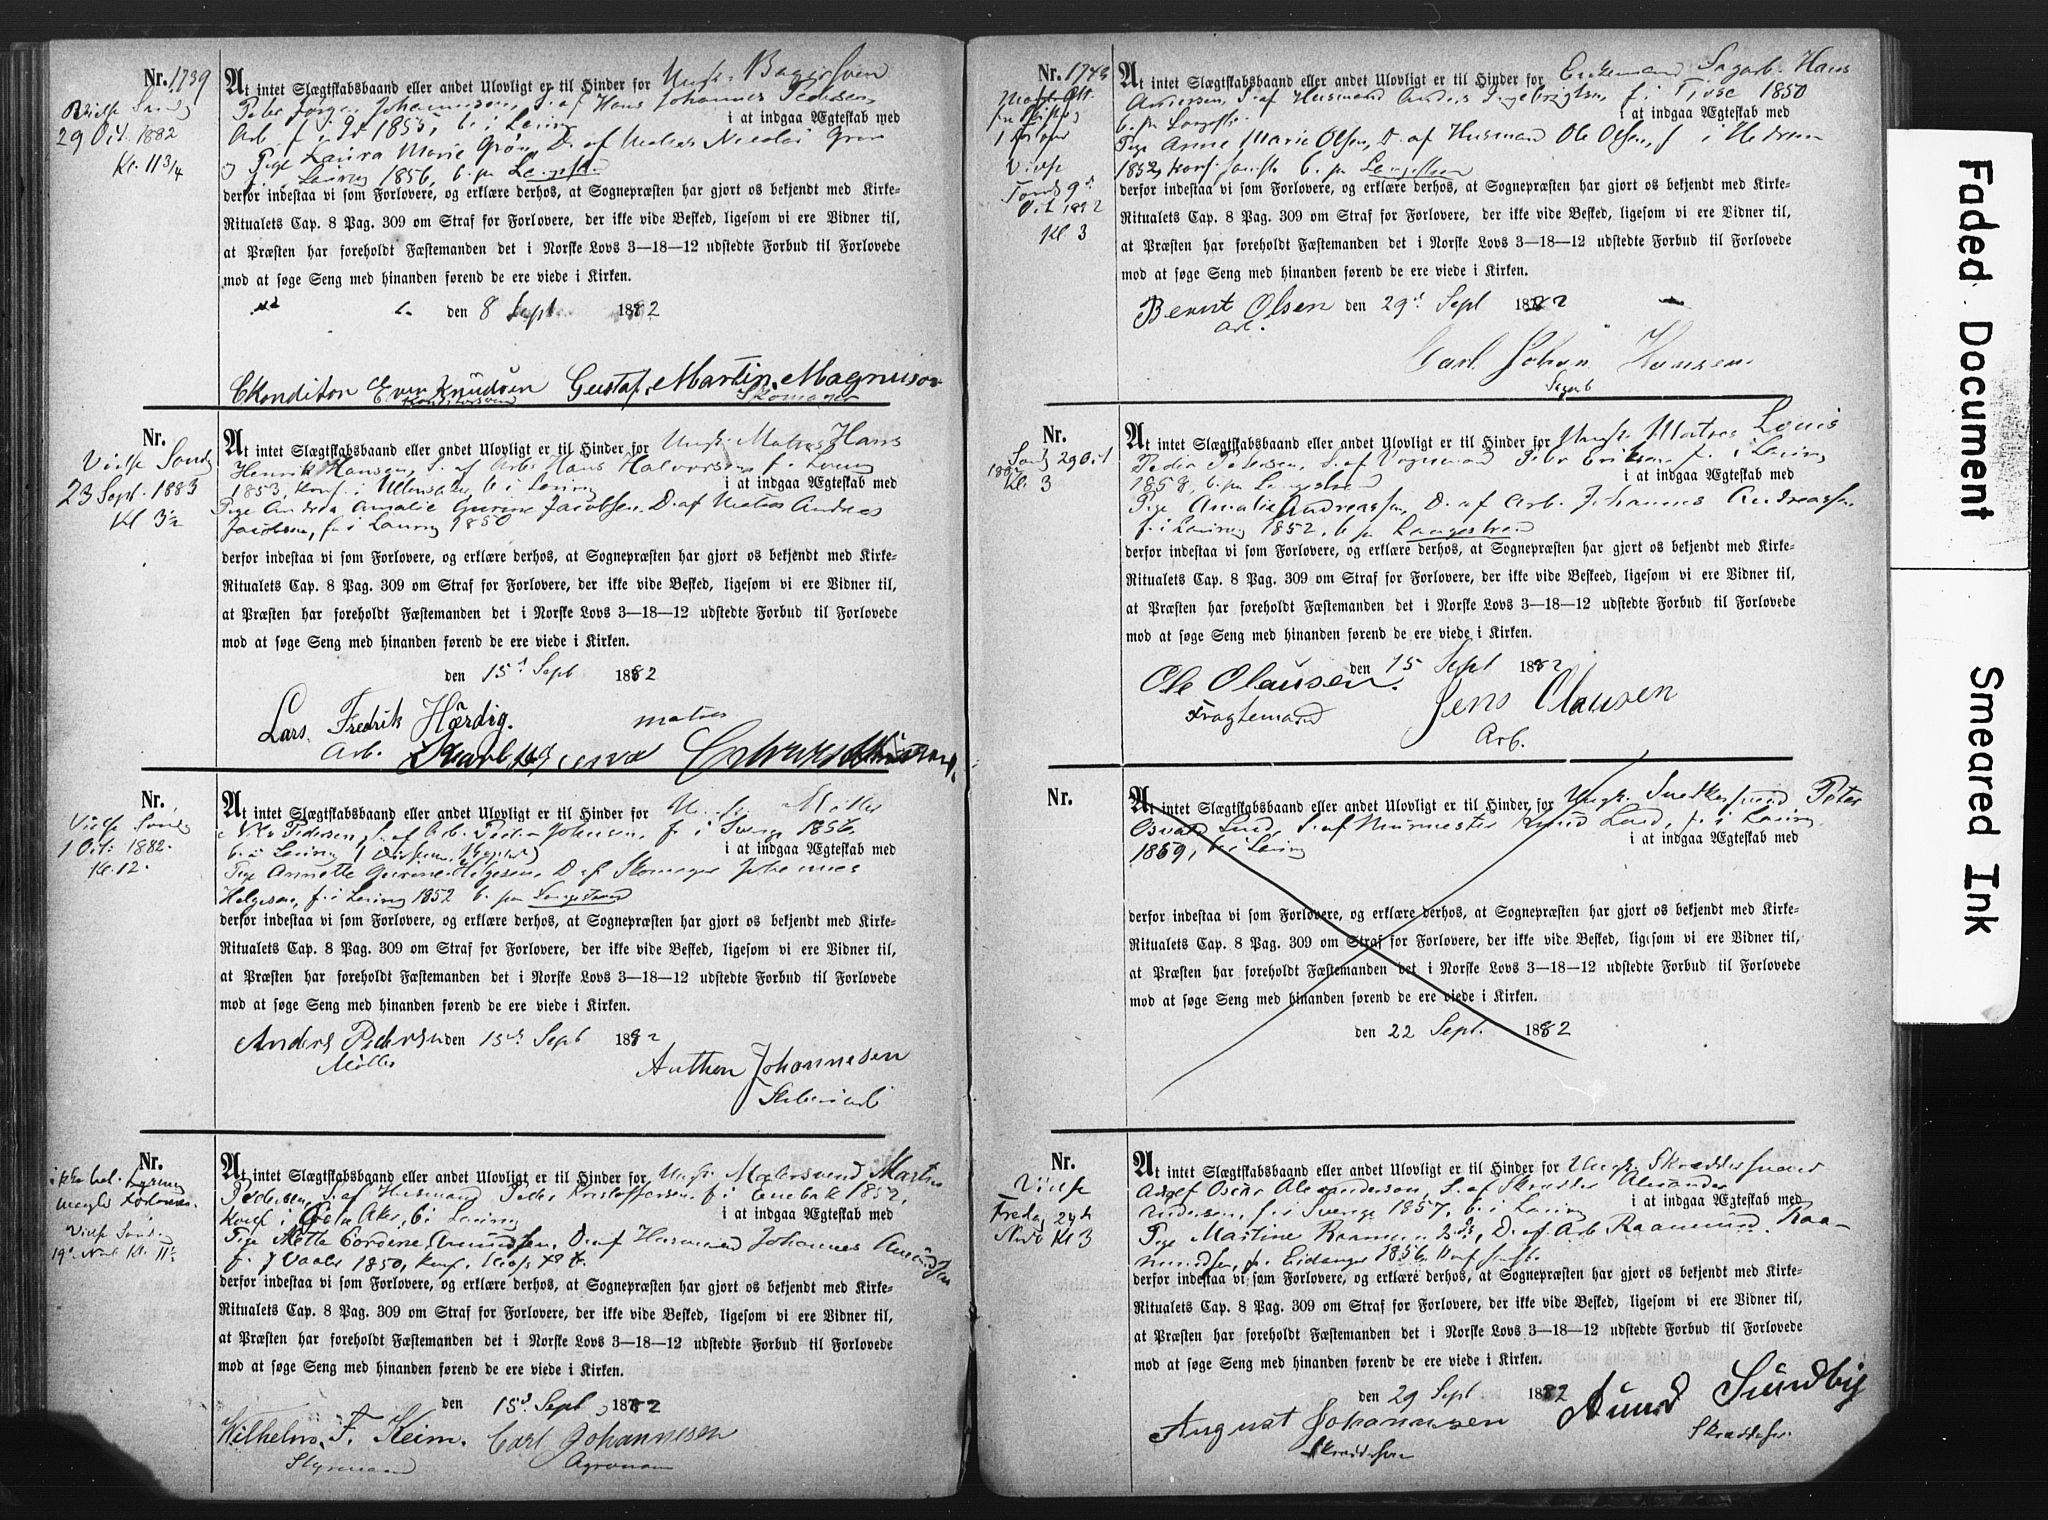 Nr. 1739
Vielse Sønd
29 Oct. 1882
Kl. 11 3/4
At intet Slægtskabsbaand eller andet Ulovligt er til Hinder for Ungk. Bagersvend
Peter Jørgen Johannesen, S. af Hans Johannes Pedersen
Arb f. i 1855, b. i Laurvig i at indgaa Ægteskab med
og Pige Laura Marie Grøn, D. af Matros Nicolai Grøn
Laurvig 1856, b. paa Langestr.
derfor indestaa vi som Forlovere, og erklære derhos, at Sognepræsten har gjort os bekjendt med Kirke-
Ritualets Cap. 8 Pag. 309 om Straf for Forlovere, der ikke vide Besked, ligesom vi ere Vidner til,
at Præsten har foreholdt Fæstemanden det i Norske Lovs 3—18—12 udstedte Forbud til Forlovede
mod at søge Seng med hinanden førend de ere viede i Kirken.
den 8 Sept 1882
Konditor Even Knudsen Gustaf Martin Magnuson
Konditorsvend Skomager
Nr.
Vielse Sønd
23 Sept. 1883
Kl 3 1/2
At intet Slægtskabsbaand eller andet Ulovligt er til Hinder for Ungk. Matros Hans
Henrik Hansen, S. af Arb. Hans Halvorsen, f. i
1853, konf. i Ullensaker, b. i Laurvig i at indgaa Ægteskab med
Pige Andrea Amalie Gurine Jacobsen, D. af Matros Andreas
Jacobsen, f. i Laurvig 1850
derfor indestaa vi som Forlovere, og erklære derhos, at Sognepræsten har gjort os bekjendt med Kirke-
Ritualets Cap. 8 Pag. 309 om Straf for Forlovere, der ikke vide Besked, ligesom vi ere Vidner til,
at Præsten har foreholdt Fæstemanden det i Norske Lovs 3—18—12 udstedte Forbud til Forlovede
mod at søge Seng med hinanden førend de ere viede i Kirken.
den 15d Sept 1882
Lars Fredrik Hærdig. matros
Arb.
Nr.
Vielse Sønd
1 Oct. 1882.
Kl. 12.
At intet Slægtskabsbaand eller andet Ulovligt er til Hinder for Ungk. Møller
Pedersen, S. af Arb. Peder Johnsen, f. i Sverige 1856,
b. i Laurvig i at indgaa Ægteskab med
Pige Annette Gurine Helgesen, D. af Skomager Johannes
Helgesen, f. i Laurvig 1852 b. paa Langestrand
derfor indestaa vi som Forlovere, og erklære derhos, at Sognepræsten har gjort os bekjendt med Kirke-
Ritualets Cap. 8 Pag. 309 om Straf for Forlovere, der ikke vide Besked, ligesom vi ere Vidner til,
at Præsten har foreholdt Fæstemanden det i Norske Lovs 3—18—12 udstedte Forbud til Forlovede
mod at søge Seng med hinanden førend de ere viede i Kirken.
Anders Pedersen den 15d Sept 1882
Møller Anthon Johannesen
Nr.
ikke bet. Lysning
mangler Forlovere.
Vielse Sønd
19d Nov. Kl. 11 1/2
At intet Slægtskabsbaand eller andet Ulovligt er til Hinder for Ungk. Malersvend Martin
Pedersen, S. af Husmand Peder Kristoffersen f. i Enebak 1852,
konf. i Østre Aker, b. i Laurvig i at indgaa Ægteskab med
Pige Mette Gordine Amundsen, D. af Husmand Johannes Amundsen
f. i Vaale 1850, konf.
derfor indestaa vi som Forlovere, og erklære derhos, at Sognepræsten har gjort os bekjendt med Kirke-
Ritualets Cap. 8 Pag. 309 om Straf for Forlovere, der ikke vide Besked, ligesom vi ere Vidner til,
at Præsten har foreholdt Fæstemanden det i Norske Lovs 3—18—12 udstedte Forbud til Forlovede
mod at søge Seng med hinanden førend de ere viede i Kirken.
den 15d Sept 1882
Wilhelm. F. Keim. Carl Johannesen
Styrmand Agronom
Nr. 1743
1 Forlover
Vielse
Torsd 9d
Oct 1882
Kl. 3
At intet Slægtskabsbaand eller andet Ulovligt er til Hinder for Enkemand Sagarb. Hans
Andersen, S. af Husmand Anders Ingebrigtsen, f. i Tjose 1850
b. paa Langestr. i at indgaa Ægteskab med
Pige Anne Marie Olsen, D. af Husmand Ole Olsen, f. i Hedrum
1852, konf. samst. b. paa Langestrand
derfor indestaa vi som Forlovere, og erklære derhos, at Sognepræsten har gjort os bekjendt med Kirke-
Ritualets Cap. 8 Pag. 309 om Straf for Forlovere, der ikke vide Besked, ligesom vi ere Vidner til,
at Præsten har foreholdt Fæstemanden det i Norske Lovs 3—18—12 udstedte Forbud til Forlovede
mod at søge Seng med hinanden førend de ere viede i Kirken.
Bernt Olsen den 29d Sept 1882
Arb.
Carl Johan Hansen
Sagarb
Nr.
Sønd 29 Oct
1882
Kl. 3
At intet Slægtskabsbaand eller andet Ulovligt er til Hinder for Ungk. Matros Louis
Peder Petersen, S. af Vognmand Peter Eriksen f. i Laurvig
1858, b. paa Langestrand i at indgaa Ægteskab med
Pige Amalie Andreassen, D. af Arb. Johannes Andreassen
f. i Laurvig 1852, b. paa Langestrand
derfor indestaa vi som Forlovere, og erklære derhos, at Sognepræsten har gjort os bekjendt med Kirke-
Ritualets Cap. 8 Pag. 309 om Straf for Forlovere, der ikke vide Besteed, ligesom vi ere Vidner til,
at Præsten har foreholdt Fæstemanden det i Norske Lovs 3—18—12 udstedte Forbud til Forlovede
mod at søge Seng med hinanden førend de ere viede i Kirken.
den 15 Sept 1882
Ole Olausen. Jens Olausen
Fragtemand Arb.
Nr.
At intet Slægtskabsbaand eller andet Ulovligt er til Hinder for Ungk. Snedkersvend Peter
Osvald Lund, S. af Murmester Knud Lund, f. i Laurvig
1859, b. i Laurvig i at indgaa Ægteskab med
derfor indestaa vi som Forlovere, og erklære derhos, at Sognepræsten har gjort os bekjendt med Kirke-
Ritualets Cap. 8 Pag. 309 om Straf for Forlovere, der ikke vide Besked, ligesom vi ere Vidner til,
at Præsten har foreholdt Fæstemanden det i Norske Lovs 3—18—12 udstedte Forbud til Forlovede
mod at søge Seng med hinanden førend de ere viede i Kirken.
den 22 Sept. 1882
Nr.
Vielse
Fredag 24d
Novb Kl 3
At intet Slægtskabsbaand eller andet Ulovligt er til Hinder for Ungk. Skræddersvend
Adolf Oscar Alexanderson, S. af Skrædder Alexander
Andersen, f. i Sverige 1857, b. i Laurvig i at indgaa Ægteskab med
Pige Martine Raamundsen, D. af Arb. Raamund Raa-
mundsen, f. i Eidanger 1856, konf. samst.
derfor indestaa vi som Forlovere, og erklære derhos, at Sognepræsten har gjort os bekjendt med Kirke-
Ritualets Cap. 8 Pag. 309 om Straf for Forlovere, der ikke vide Besked, ligesom vi ere Vidner til,
at Præsten har foreholdt Fæstemanden det i Norske Lovs 3—18—12 udstedte Forbud til Forlovede
mod at søge Seng med hinanden førend de ere viede i Kirken.
den 29 Sept 1882
August Johannesen Amund Sundby
Skræddersven Skræddersv.
Faded Document
Smeared Ink